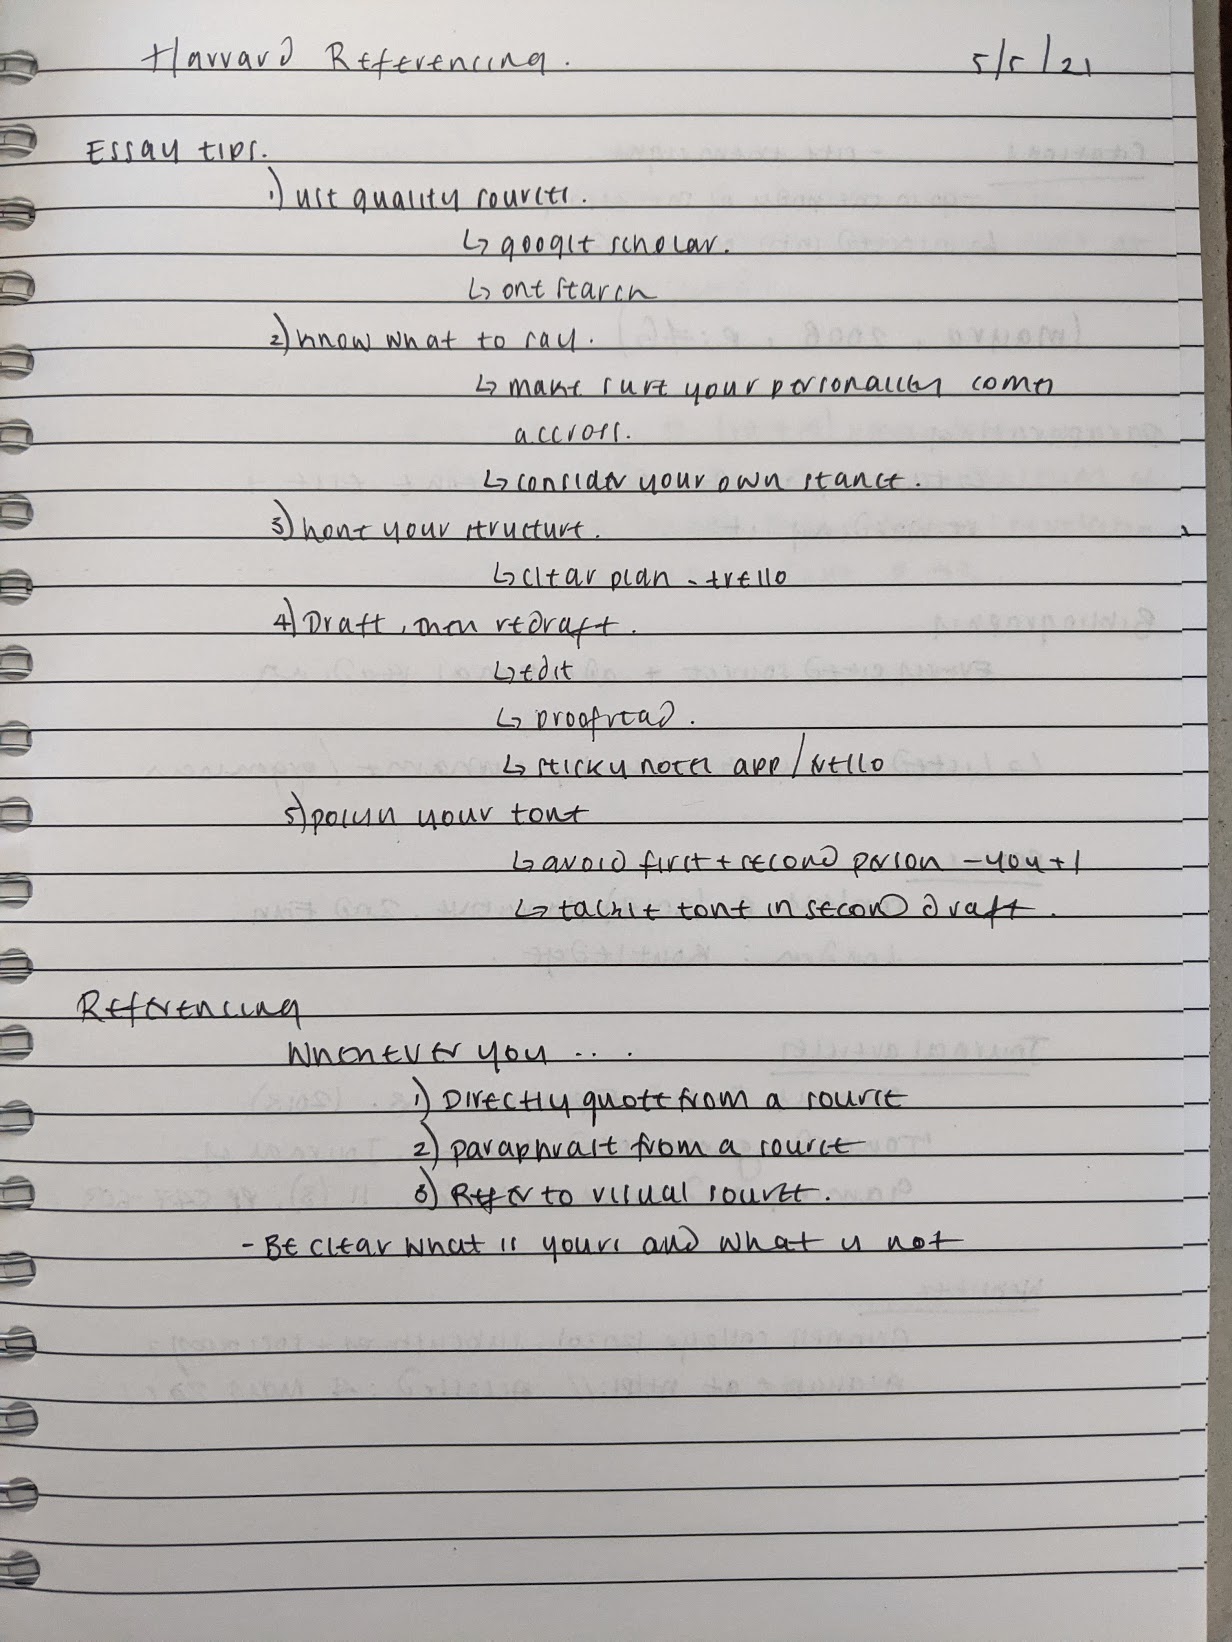 Harvard Referencing.
5/5/21
Essay tips.
1) use quality sources.
↳ google scholar.
↳ onesearch
2) know what to say.
↳ make sure your personality comes
accross.
↳ consider your own stance.
3) hone your structure.
↳ clear plan - trello
4) Draft, then redraft.
↳ edit
↳ proofread.
↳ sticky notes app / trello
5) polish your tone
↳ avoid first + second person - you + I
↳ tackle tone in second draft.
Referencing
Whenever you ...
1) Directly quote from a source
2) paraphrase from a source
3) Refer to visual source.
- Be clear what is yours and what is not